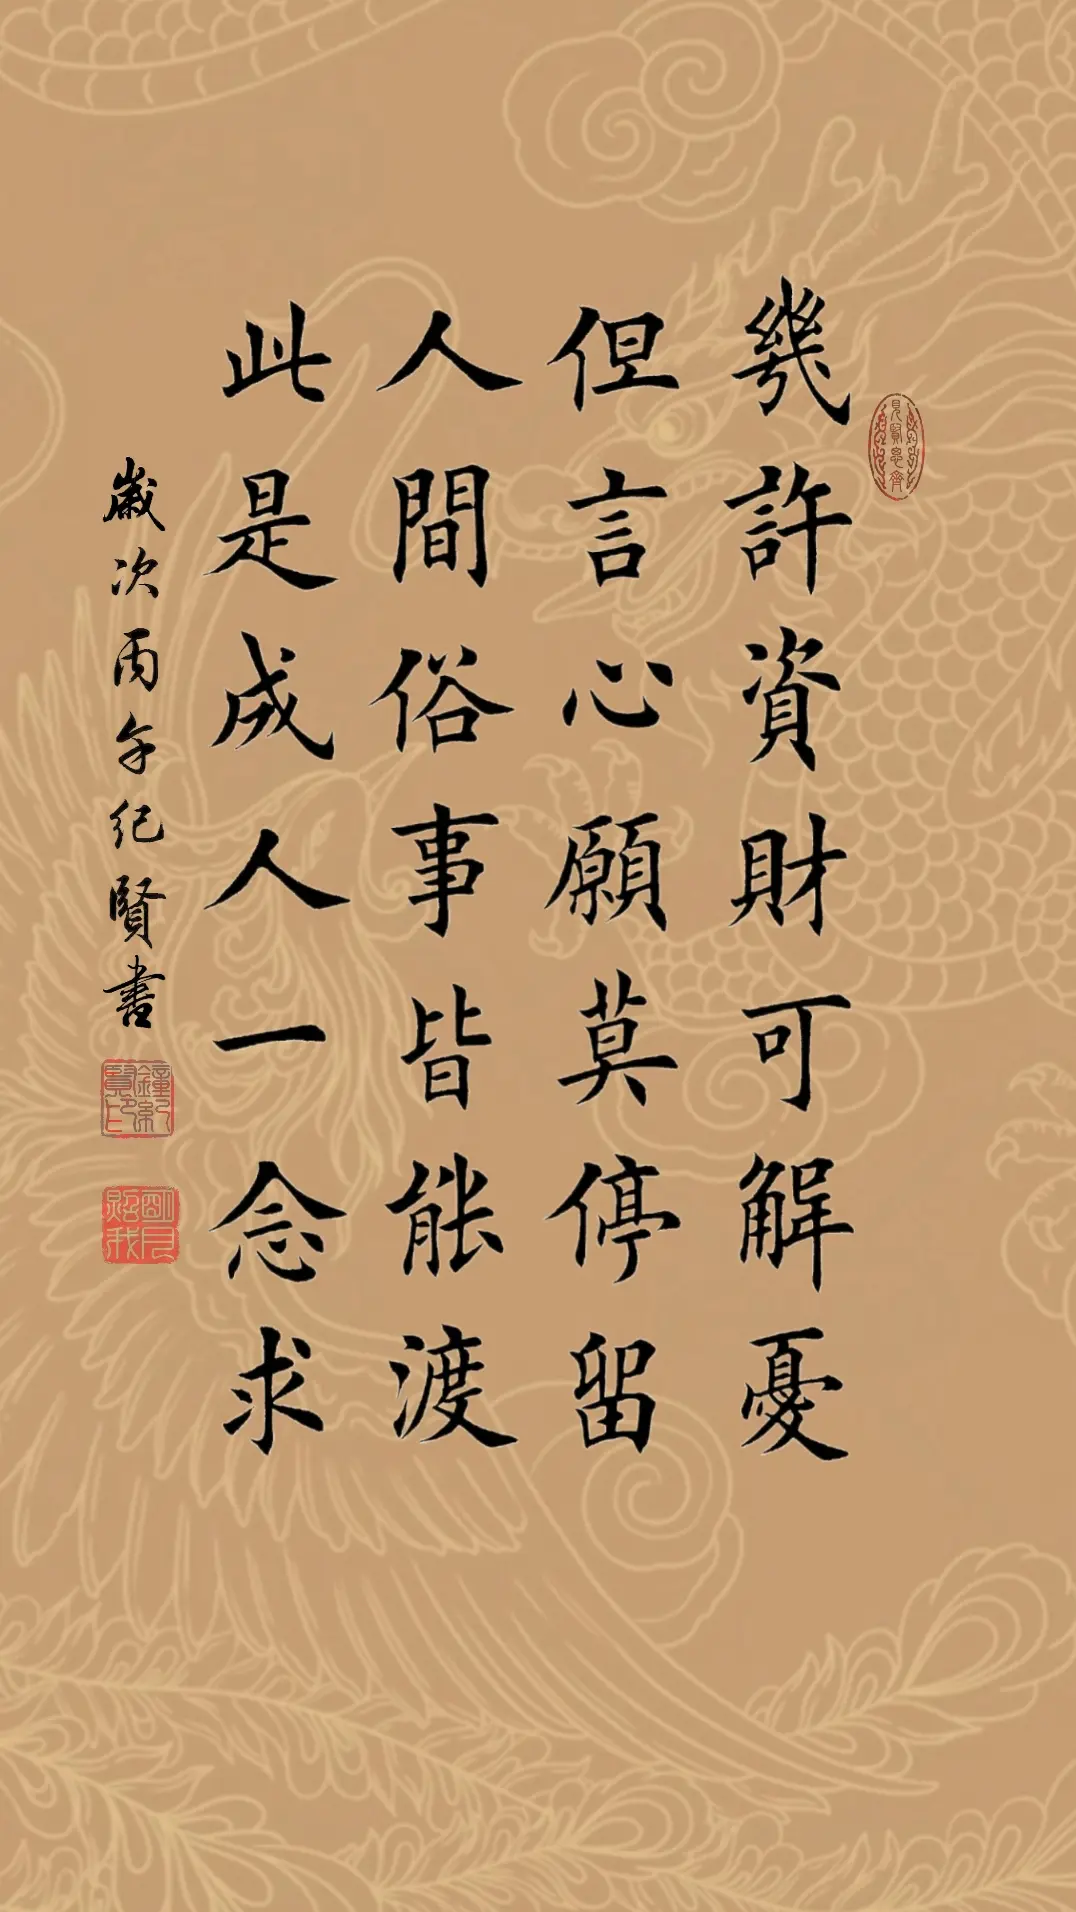 幾許資財可解憂
但言心願莫停留
人間俗事皆能渡
此是成人一念求
歲次丙午紀賢書
見賢思齊
鐘紀賢印